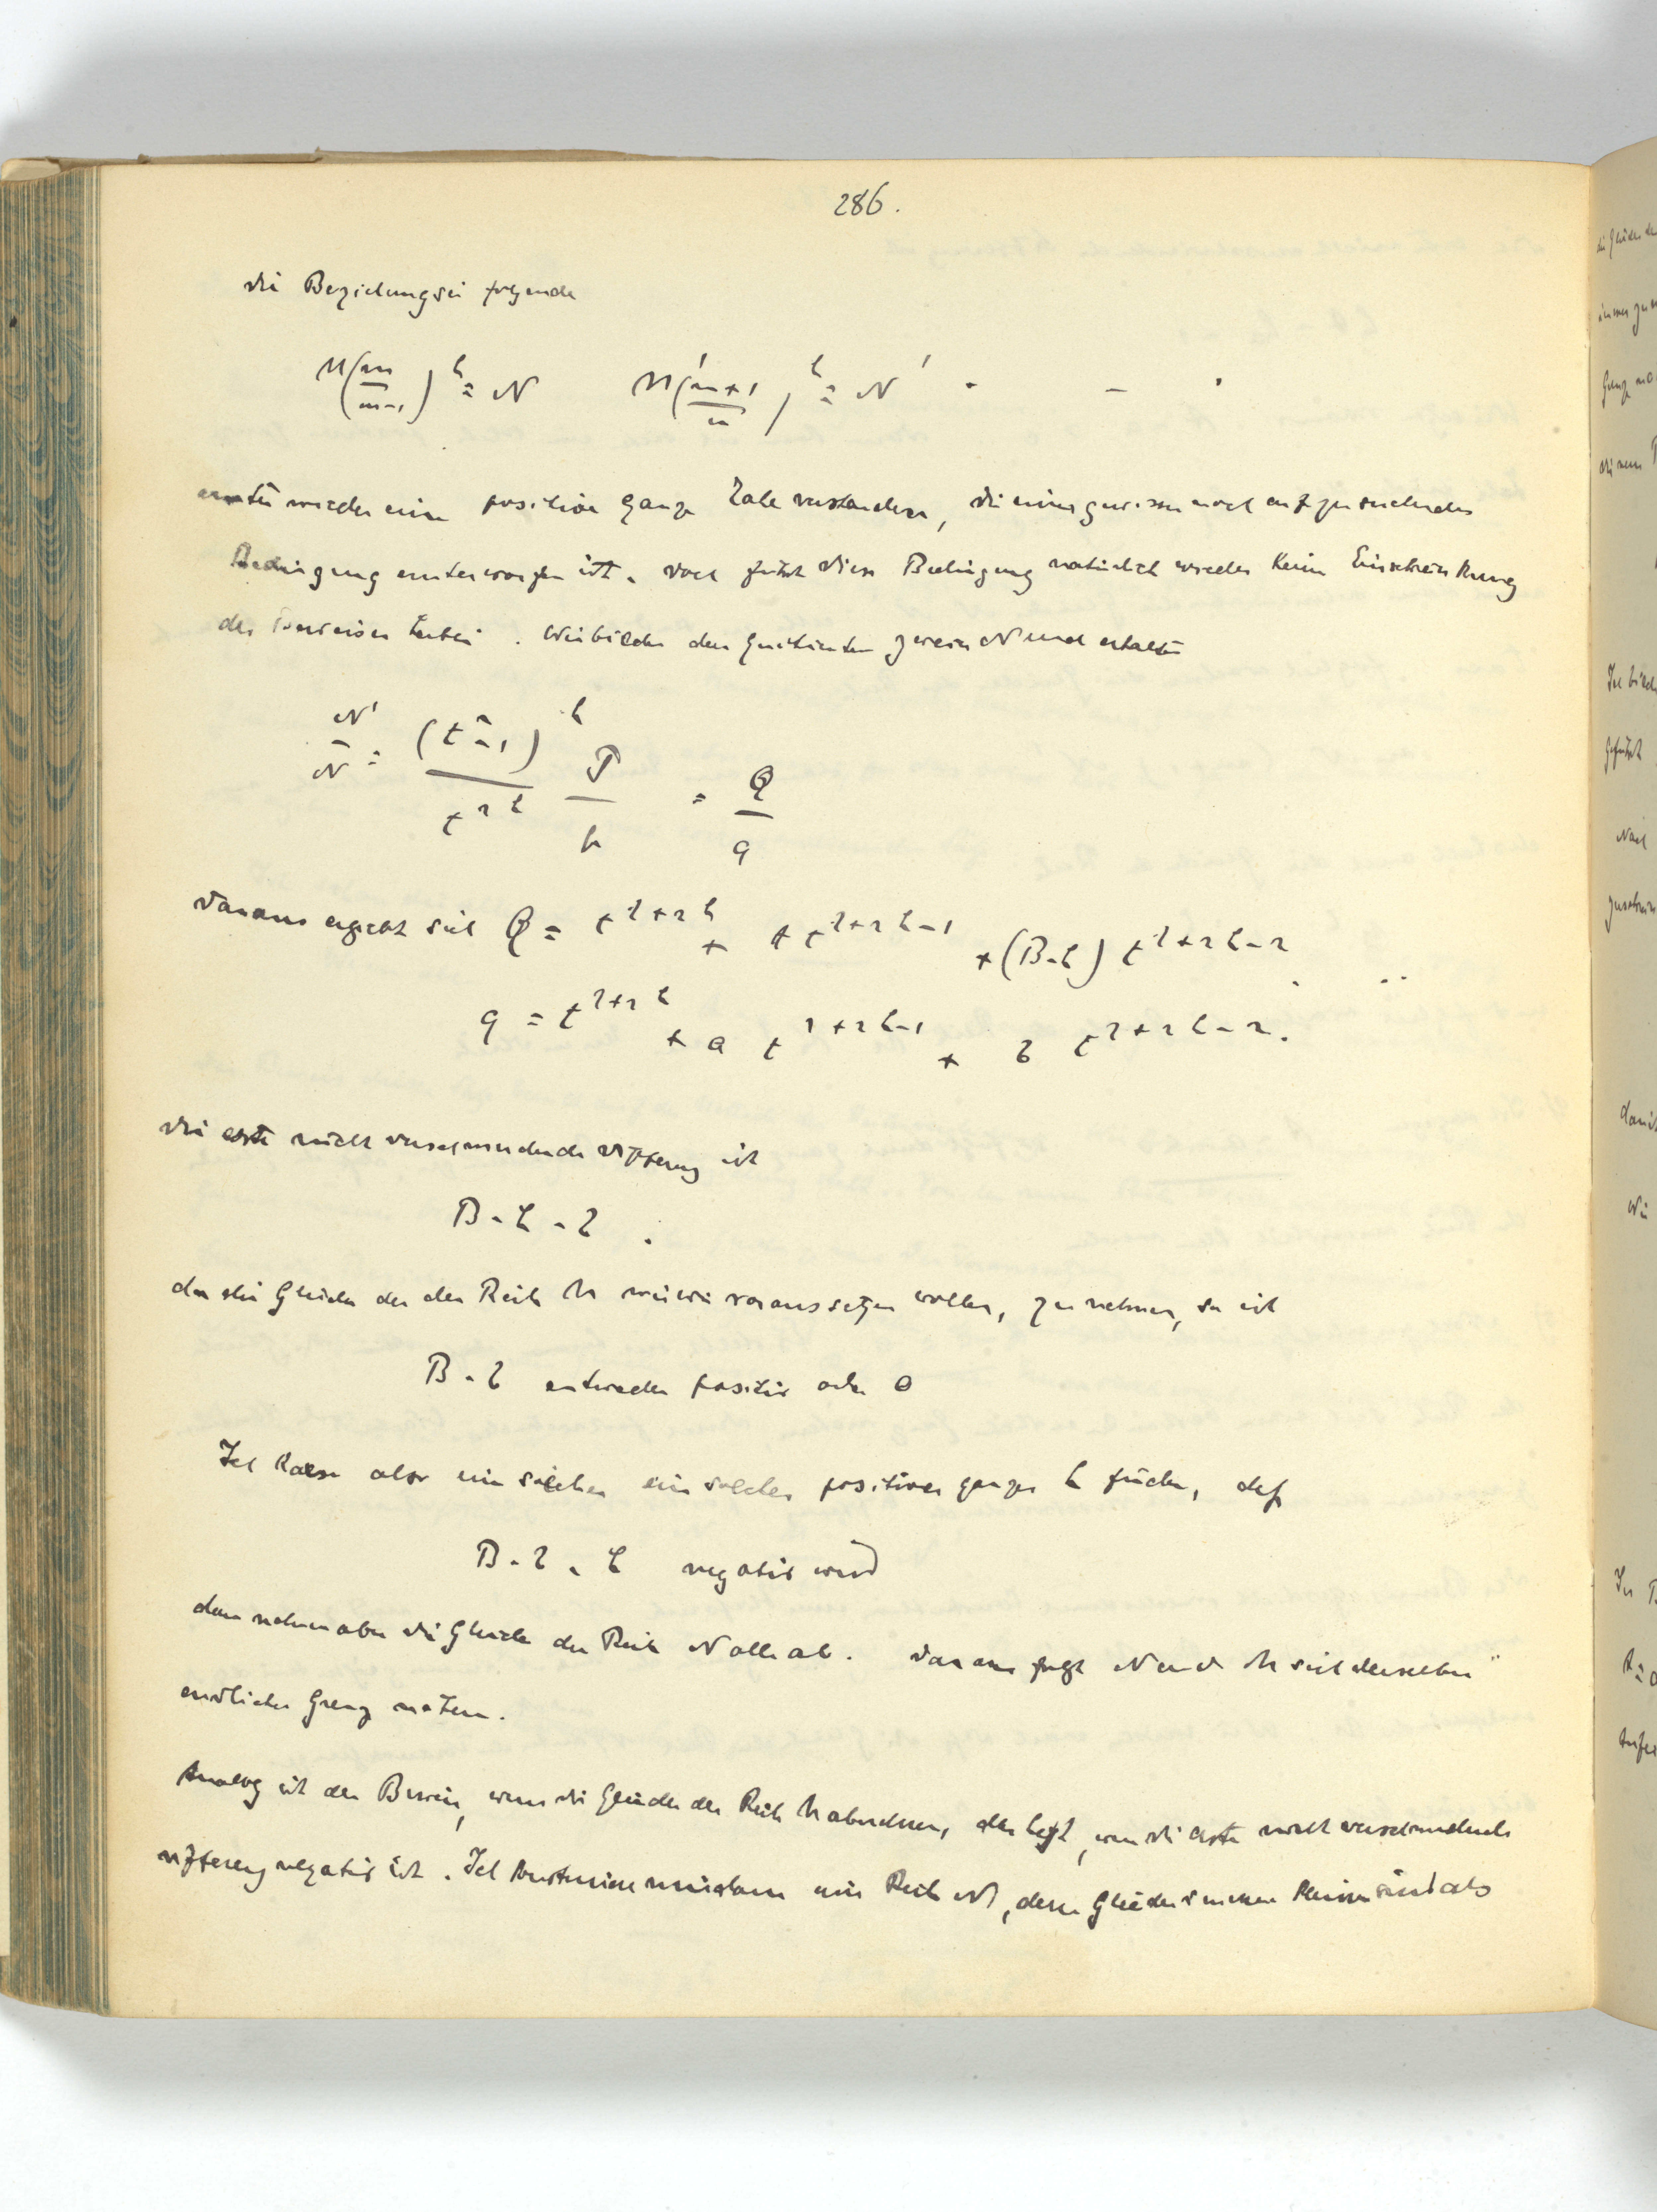 286.
die Beziehung sei folgende
M(m/m-1)^h = N   M'(m+1/m)^h = N' . - .
unter wieder eine positive ganze Zahl verstanden, die einer gewissen noch aufzusuchenden
Bedingung unterworfen ist. doch führt diese Bedingung natürlich wieder keine Einschränkung
des Beweises herbei. Wir bilden den Quotienten zweier N und erhalten
N'/N = (t²-1)^h/t^2h P/p = Q/q
daraus ergiebt sich Q = t^λ+2h + A t^λ+2h-1 + (B-h) t^λ+2h-2 . ..
q = t^λ+2h + a t^λ+2h-1 + b t^λ+2h-2.
die erste nicht verschwindende Differenz ist
B-h-b .
da die Glieder der Reihe M wie wir voraussetzen wollen, zunehmen, so ist
B-b entweder positiv oder 0
Ich kann also ein solches ein solches positives ganzes h finden, daß
B-b-h negativ wird
dann nehmen aber die Glieder der Reihe N alle ab. daraus folgt N und M sich derselben
endlichen Grenze nähern.
Analog ist der Beweis, wenn die Glieder der Reihe M abnehmen, das heißt, wenn die erste nicht verschwindende
Differenz negativ ist. Ich construiere nun eine Reihe N, deren Glieder immer kleiner sind als